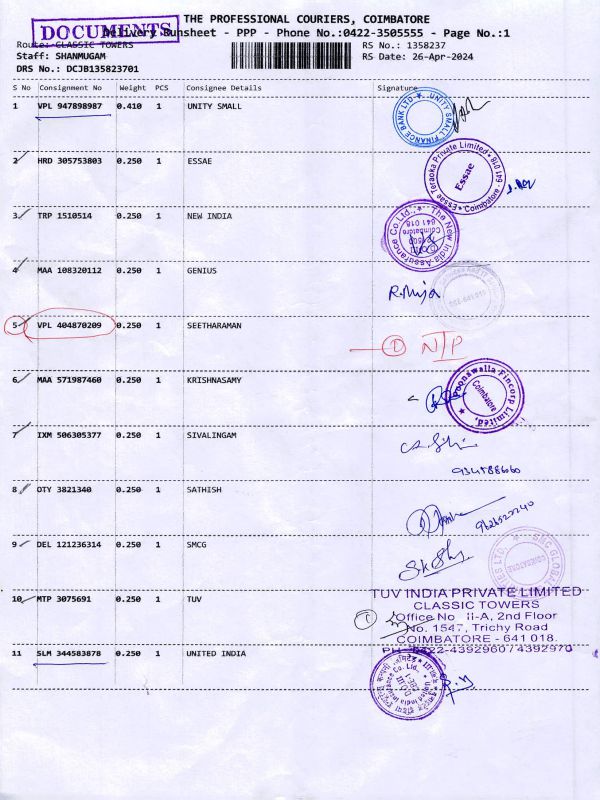 THE PROFESSIONAL COURIERS, COIMBATORE
DOCUMENTS
Delivery Runsheet - PPP - Phone No.:0422-3505555 - Page No.:1
Route: CLASSIC TOWERS
RS No.: 1358237
Staff: SHANMUGAM
RS Date: 26-Apr-2024
DRS No.: DCJB135823701
S No Consignment No Weight PCS Consignee Details Signature
1 VPL 947898987 0.410 1 UNITY SMALL
UNITY SMALL FINANCE BANK LTD
2 HRD 305753803 0.250 1 ESSAE
Essae Teraoka Private Limited
Essae
Coimbatore - 641 018
3 TRP 1510514 0.250 1 NEW INDIA
The New India Assurance Co Ltd.,
Coimbatore
641 018
4 MAA 108320112 0.250 1 GENIUS
5 VPL 404870209 0.250 1 SEETHARAMAN
1 NTP
6 MAA 571987460 0.250 1 KRISHNASAMY
Poonawalla Fincorp Limited,
Coimbatore
7 IXM 506305377 0.250 1 SIVALINGAM
8 OTY 3821340 0.250 1 SATHISH
9 DEL 121236314 0.250 1 SMCG
SBC GLOBAL
COIMBATORE
10 MTP 3075691 0.250 1 TUV
TUV INDIA PRIVATE LIMITED
CLASSIC TOWERS
Office No II-A, 2nd Floor
No. 1547, Trichy Road
COIMBATORE - 641 018.
PH: 0422-4392960 / 4392970
11 SLM 344583878 0.250 1 UNITED INDIA
United India Insurance Co. Ltd.,
DO III